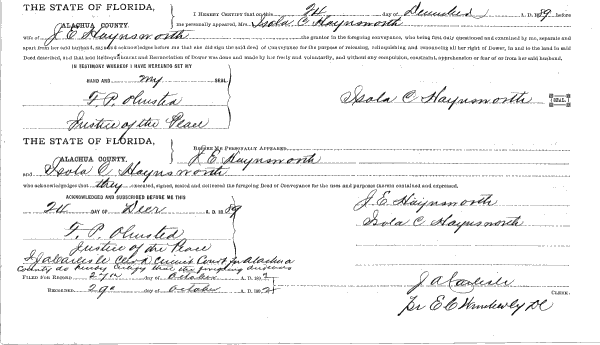 THE STATE OF FLORIDA,
ALACHUA COUNTY.
I HEREBY CERTIFY that on this 24 day of December A. D. 1889 before
me personally appeared, Mrs. Isola C Haynsworth
wife of J E Haynsworth the grantor in the foregoing conveyance, who being first duly questioned and examined by me, separate and
apart from her said husband, and acknowledges before me that she did sign the said deed of Conveyance for the purpose of releasing, relinquishing and renouncing all her right of Dower, in and to the land in said
Deed described, and that said Relinquishment and Renunciation of Dower was done and made by her freely and voluntarily, and without any compulsion, constraint, apprehension or fear of or from her said husband,
IN TESTIMONY WHEREOF I HAVE HEREUNTO SET MY
HAND AND my SEAL.
F. P. Olmsted
Justice of the Peace
Isola C Haynsworth SEAL.
THE STATE OF FLORIDA,
ALACHUA COUNTY.
BEFORE ME PERSONALLY APPEARED J E Haynsworth
and Isola C Haynsworth
who acknowledges that they executed, signed, sealed and delivered the foregoing Deed of Conveyance for the uses and purposes therein contained and expressed.
ACKNOWLEDGED AND SUBSCRIBED BEFORE ME THIS
24 DAY OF Decr A. D. 1889
J. E. Haynsworth
Isola C Haynsworth
F. P. Olmsted
Justice of the Peace
Clerk Circuit Court for Alachua
County do hereby certify that the foregoing
FILED FOR RECORD 27th day of October A. D. 189
RECORDED 29th day of October A. D. 189
J A Carlisle CLERK.
pr E C DC